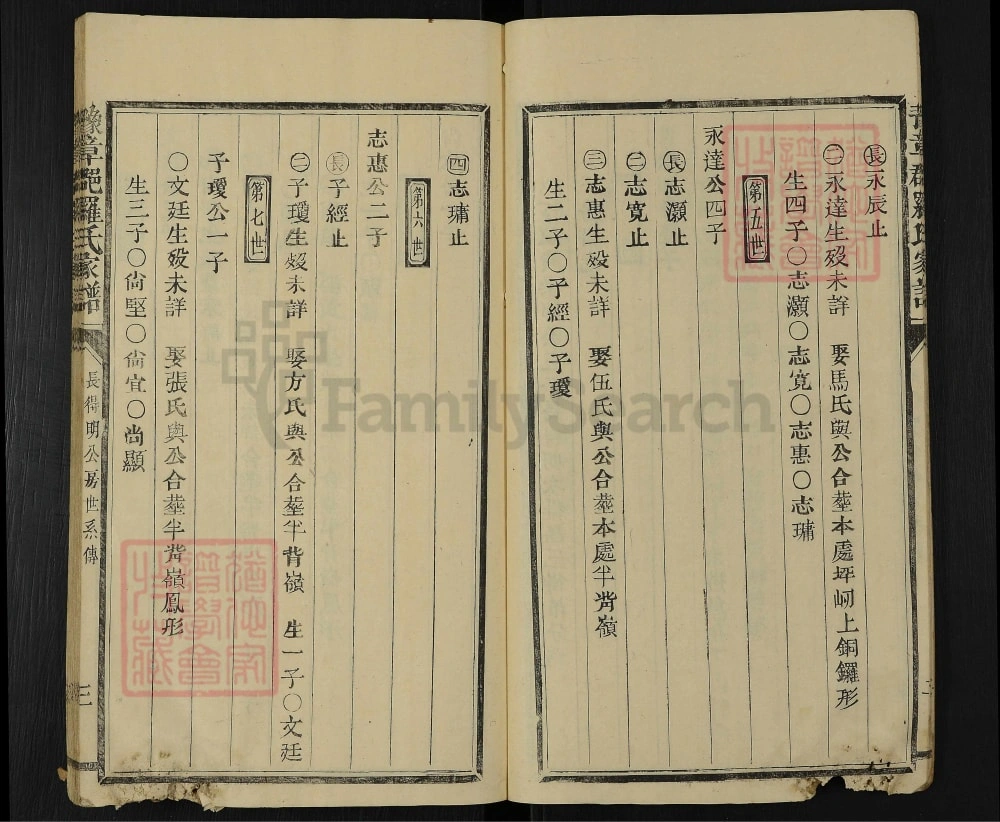 長永辰止
二永達生歿未詳 娶馬氏與公合塟本處坪坰上銅鑼形
生四子〇志灝〇志寛〇志惠〇志璛
第五世
永達公四子
長志灝止
二志寛止
三志惠生歿未詳 娶伍氏與公合塟本處半背嶺
生二子〇子經〇子瓊
四志璛止
第六世
志惠公二子
長子經止
二子瓊生歿未詳 娶方氏與公合塟半背嶺 生一子〇文廷
第七世
子瓊公一子
〇文廷生歿未詳 娶張氏與公合塟半背嶺鳳形
生三子〇尙堅〇尙宜〇尙顯
豫章郡羅氏家譜
長得明公房世系傳
三
FamilySearch